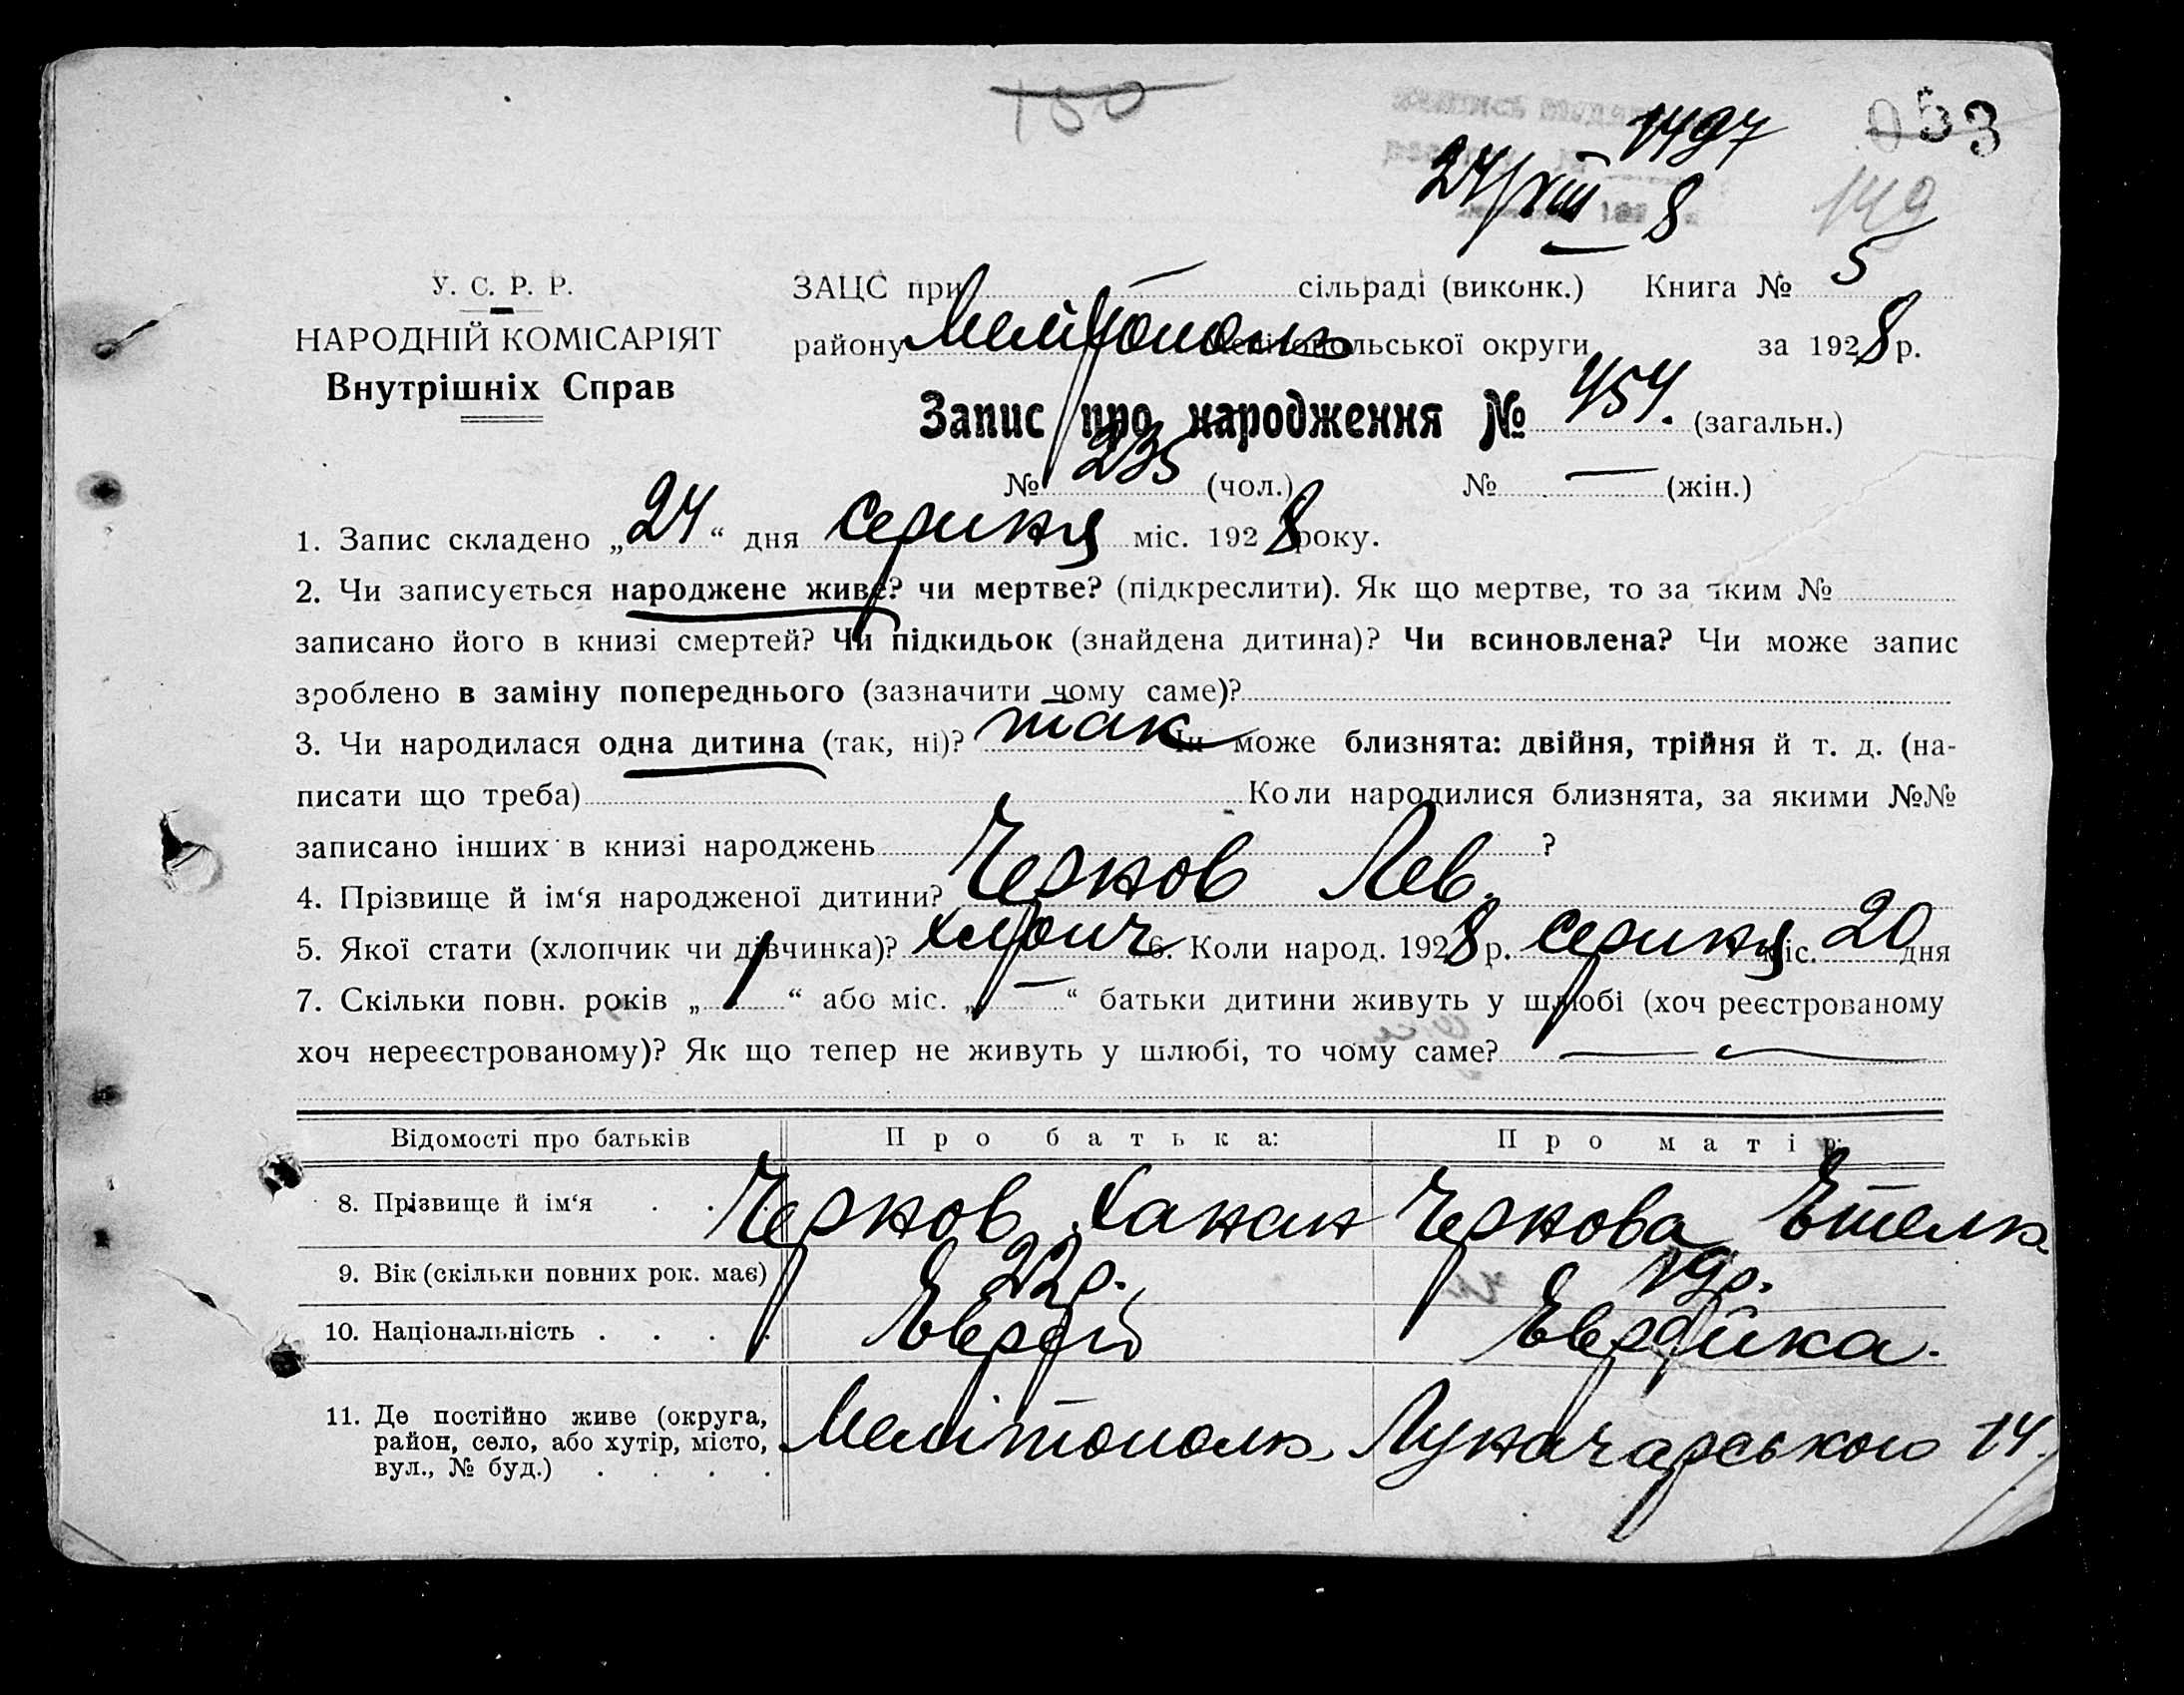 150
1497
053
24/VIII 8
149
У. С. Р. Р.
НАРОДНІЙ КОМІСАРІЯТ
Внутрішніх Справ
ЗАЦС при — сільраді (виконк.) Книга № 5
району Мелітополь Мелітопольської округи за 1928 р.
Запис про народження № 454. (загальн.)
№ 235 (чол.) № — (жін.)
1. Запис складено „24“ дня серпня міс. 1928 року.
2. Чи записується народжене живе? чи мертве? (підкреслити). Як що мертве, то за яким №
записано його в книзі смертей? Чи підкидьок (знайдена дитина)? Чи всиновлена? Чи може запис
зроблено в заміну попереднього (зазначити чому саме)?
3. Чи народилася одна дитина (так, ні)? так Чи може близнята: двійня, трійня й т. д. (на-
писати що треба) Коли народилися близнята, за якими №№
записано інших в книзі народжень ?
4. Прізвище й ім‘я народженої дитини? Чернов Лев.
5. Якої стати (хлопчик чи дівчинка)? хлопч 6. Коли народ. 1928 р. серпня міс. 20 дня
7. Скільки повн. років „1“ або міс. „—“ батьки дитини живуть у шлюбі (хоч реєстрованому
хоч нереєстрованому)? Як що тепер не живуть у шлюбі, то чому саме? —
Відомості про батьків Про батька: Про матір:
8. Прізвище й ім‘я . . . Чернов Ханан Чернова Етель
9. Вік (скільки повних рок. має) 22 р. 19 р.
10. Національність . . . . Еврей Еврейка.
11. Де постійно живе (округа,
район, село, або хутір, місто,
вул., № буд.) . . . . Мелітополь Луначарського 14.